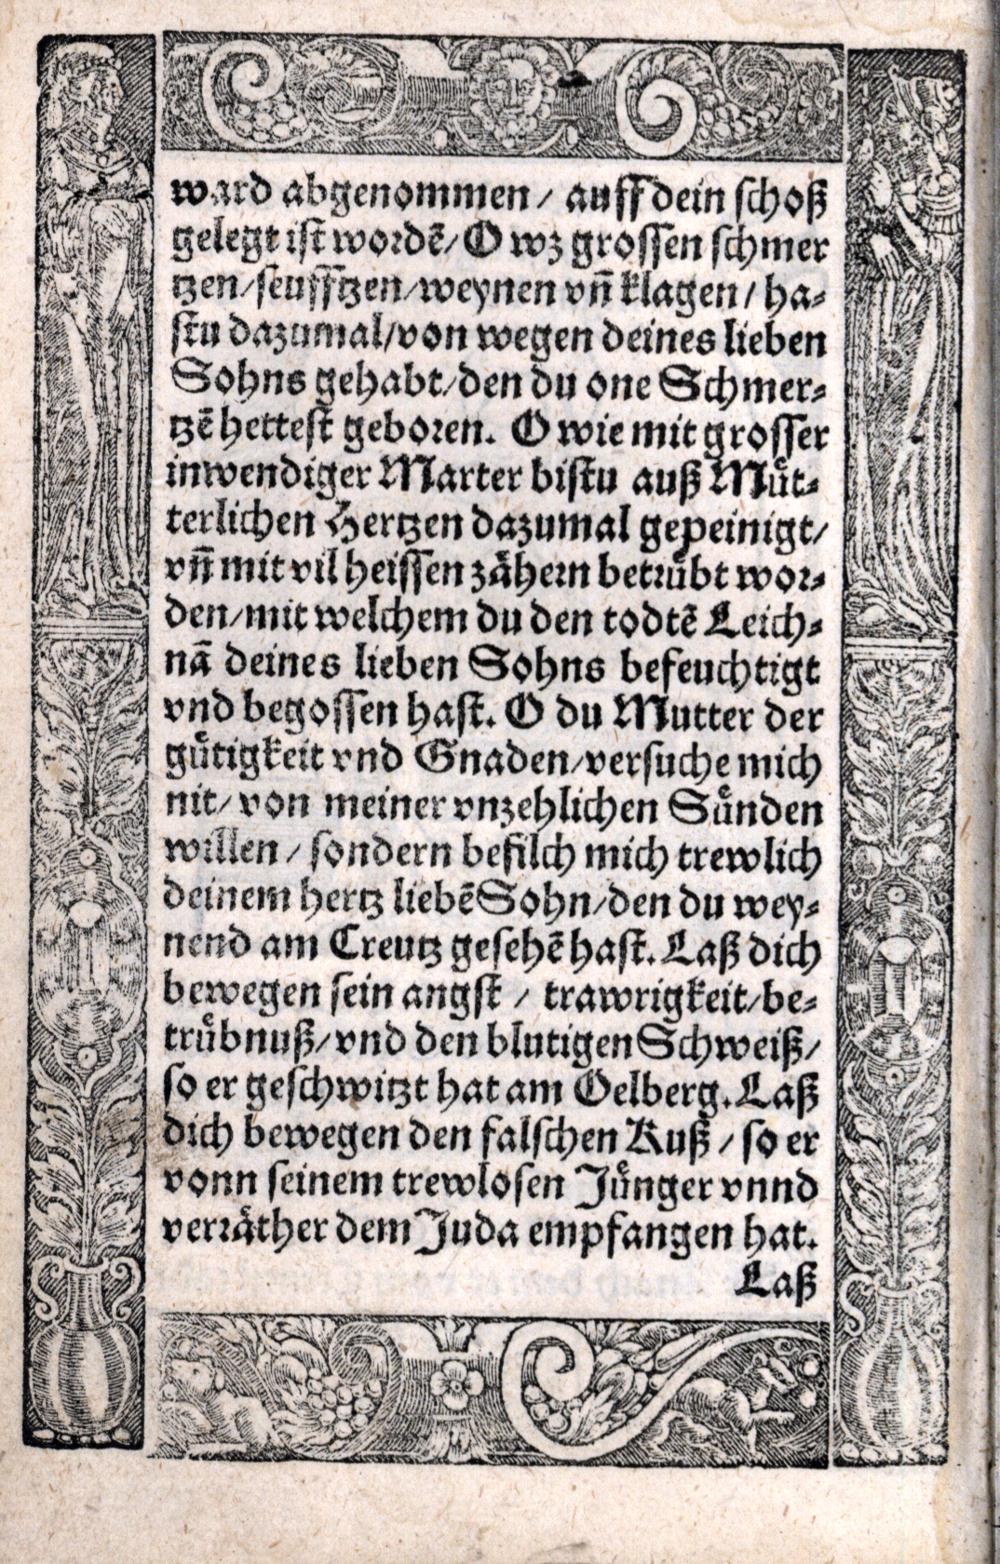 ward abgenommen / auff dein schoß
gelegt ist wordẽ / O wz grossen schmer
tzen / seufftzen / weynen vñ klagen / ha⸗
stu dazumal / von wegen deines lieben
Sohns gehabt / den du one Schmer⸗
tzẽ hettest geboren. O wie mit grosser
inwendiger Marter bistu auß Muͤt⸗
terlichen Hertzen dazumal gepeinigt /
vñ mit vil heissen zaͤhern betruͤbt wor⸗
den / mit welchem du den todtẽ Leich⸗
nã deines lieben Sohns befeuchtigt
vnd begossen hast. O du Mutter der
guͤtigkeit vnd Gnaden / versuche mich
nit / von meiner vnzehlichen Suͤnden
willen / sondern befilch mich trewlich
deinem hertz liebẽ Sohn / den du wey⸗
nend am Creutz gesehẽ hast. Laß dich
bewegen sein angst / trawrigkeit / be⸗
truͤbnuß / vnd den blutigen Schweiß /
so er geschwitzt hat am Oelberg. Laß
dich bewegen den falschen Kuß / so er
vonn seinem trewlosen Juͤnger vnnd
verraͤther dem Juda empfangen hat.
Laß